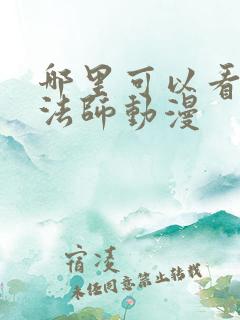 哪里可以看
法師動漫
宿凌
未经同意禁止转载